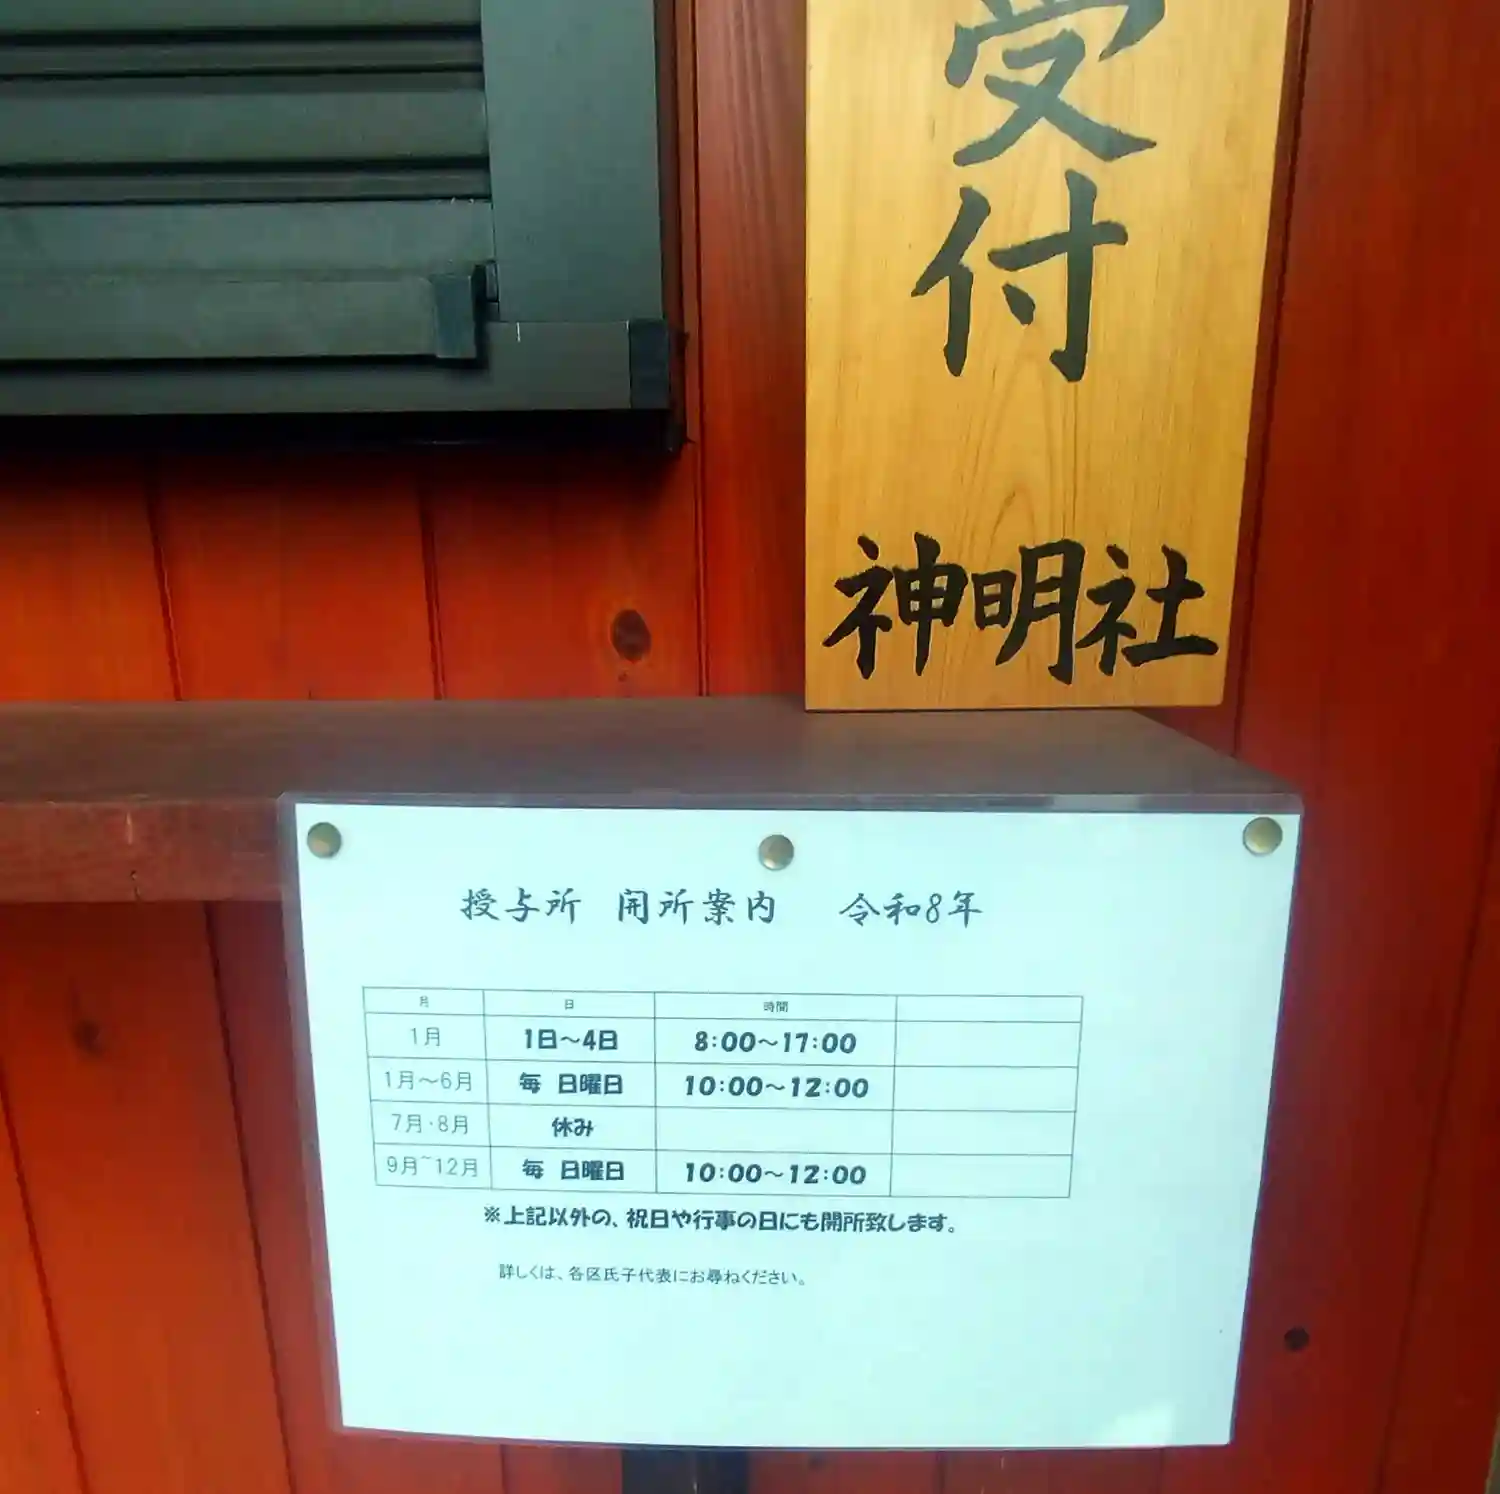 受付
神明社
授与所 開所案内 令和8年
月 日 時間
1月 1日～4日 8:00～17:00
1月～6月 毎 日曜日 10:00～12:00
7月・8月 休み
9月~12月 毎 日曜日 10:00～12:00
※上記以外の、祝日や行事の日にも開所致します。
詳しくは、各区氏子代表にお尋ねください。